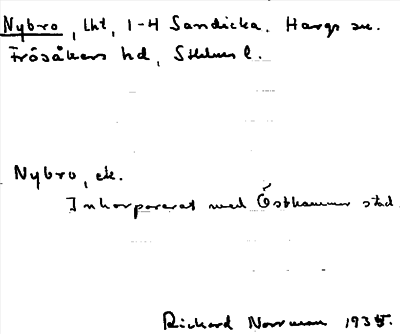 Nybro, Lht, 1-4 Sandicka. Hargs sn.
Frösåkers hd, Sthlms l.
Nybro, etc.
Inkorporerat med Östhammar stad.
Richard Norrman 1935.